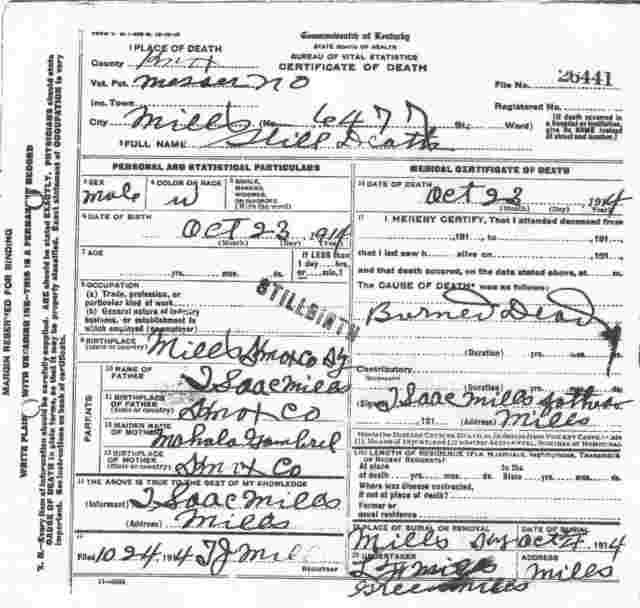 Commonwealth of Kentucky
STATE BOARD OF HEALTH
BUREAU OF VITAL STATISTICS
CERTIFICATE OF DEATH
1 PLACE OF DEATH
County Knox
Vot. Pct. Messer NO
File No. 26441
Inc. Town
Registered No.
City Mills (No. 6477 St.; Ward)
[If death occurred in a hospital or institution, give its NAME instead of street and number.]
2 FULL NAME Still Death
PERSONAL AND STATISTICAL PARTICULARS
3 SEX male
4 COLOR OR RACE W
5 SINGLE, MARRIED, WIDOWED, OR DIVORCED
6 DATE OF BIRTH
Oct 23 1914
(Month) (Day) (Year)
7 AGE
yrs. mos. ds.
If LESS than 1 day, hrs. or min.?
8 OCCUPATION
(a) Trade, profession, or particular kind of work
(b) General nature of industry business, or establishment in which employed (or employer)
STILLBIRTH
9 BIRTHPLACE
(State or country) Mills Knox Co Ky
PARENTS
10 NAME OF FATHER
Isaac Mills
11 BIRTHPLACE OF FATHER
(State or country) Knox Co
12 MAIDEN NAME OF MOTHER
Mahala Gambrel
13 BIRTHPLACE OF MOTHER
(State or country) Knox Co
14 THE ABOVE IS TRUE TO THE BEST OF MY KNOWLEDGE
(Informant) Isaac Mills
(Address) Mills
15
Filed 10 24 1914 T J Mills
Registrar
MEDICAL CERTIFICATE OF DEATH
16 DATE OF DEATH
Oct 23 1914
(Month) (Day) (Year)
17 I HEREBY CERTIFY, That I attended deceased from
, 191 , to , 191 ,
that I last saw h alive on , 191 ,
and that death occurred, on the date stated above, at m.
The CAUSE OF DEATH* was as follows:
Borned Dead
(Duration) yrs. mos. ds.
Contributory
(Duration) yrs. mos. ds.
(Signed) Isaac Mills father
, 191 (Address) Mills
18 LENGTH OF RESIDENCE (For Hospitals, Institutions, Transients, or Recent Residents)
At place of death yrs. mos. ds. In the State yrs. mos. ds.
Where was disease contracted, if not at place of death?
Former or usual residence
19 PLACE OF BURIAL OR REMOVAL
Mills Ky
DATE OF BURIAL
1914
20 UNDERTAKER
Mills
Green Mills
ADDRESS
Mills
MARGIN RESERVED FOR BINDING
WRITE PLAINLY WITH UNFADING INK—THIS IS A PERMANENT RECORD
N. B.—Every item of information should be carefully supplied. AGE should be stated EXACTLY. PHYSICIANS should state
CAUSE OF DEATH in plain terms, so that it may be properly classified. Exact statement of OCCUPATION is very
important. See instructions on back of certificate.